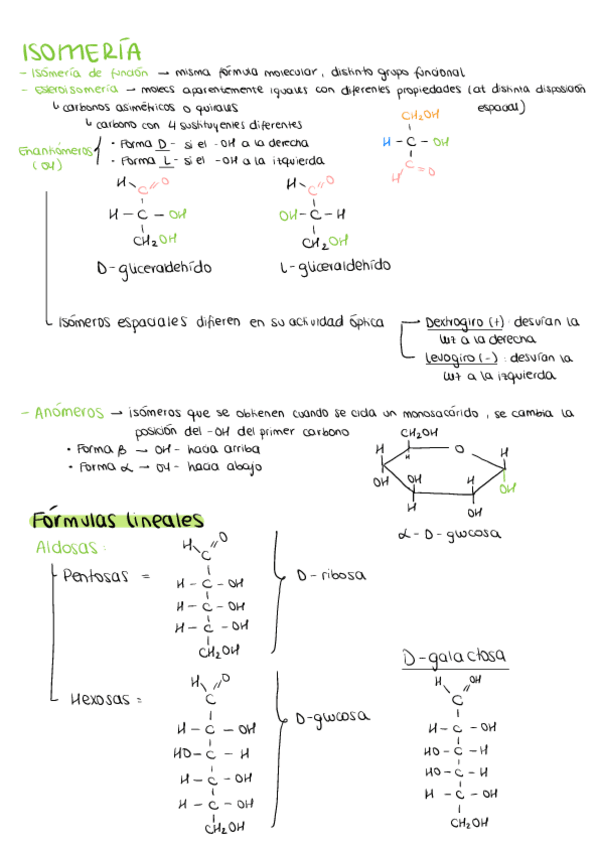 ISOMERÍA
- Isómería de función → misma fórmula molecular, distinto grupo funcional
- Esteroisomería → molecs aparentemente iguales con diferentes propiedades (at distinta disposición espacial)
↳ carbonos asimétricos o quirales
↳ carbono con 4 sustituyentes diferentes
Enantiómeros (OH)
• Forma D - si el -OH a la derecha
• Forma L - si el -OH a la izquierda
CH2OH
H - C - OH
C = O
H
H O
C
H - C - OH
CH2OH
D-gliceraldehído
H O
C
OH - C - H
CH2OH
L-gliceraldehído
Isómeros espaciales difieren en su actividad óptica
Dextrogiro (+): desvían la
luz a la derecha
Levogiro (-): desvían la
luz a la izquierda
- Anómeros → isómeros que se obtienen cuando se cicla un monosacárido, se cambia la
posición del -OH del primer carbono
• Forma β → OH - hacia arriba
• Forma α → OH - hacia abajo
CH2OH
H O H
H
OH OH H OH
H OH
α - D - glucosa
Fórmulas lineales
Aldosas:
Pentosas =
H O
C
H - C - OH
H - C - OH
H - C - OH
CH2OH
D-ribosa
Hexosas =
H O
C
H - C - OH
HO - C - H
H - C - OH
H - C - OH
CH2OH
D-glucosa
D-galactosa
H OH
C
H - C - OH
HO - C - H
HO - C - H
H - C - OH
CH2OH